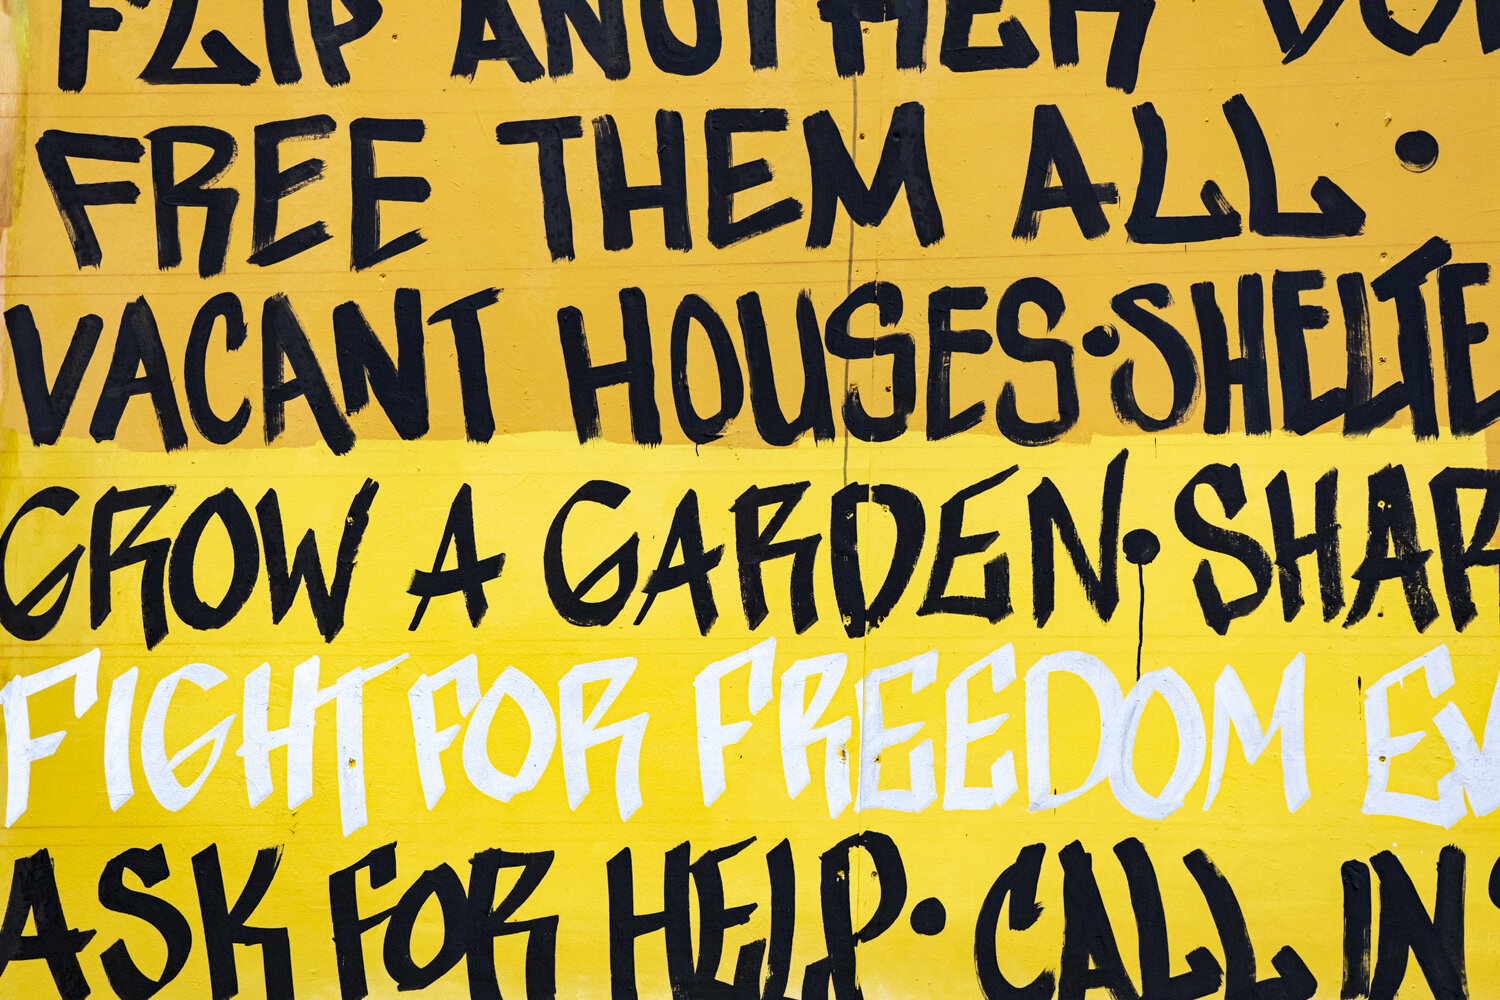 FLIP ANOTHER
FREE THEM ALL •
VACANT HOUSES • SHELTE
GROW A GARDEN • SHAR
FIGHT FOR FREEDOM EV
ASK FOR HELP • CALL IN